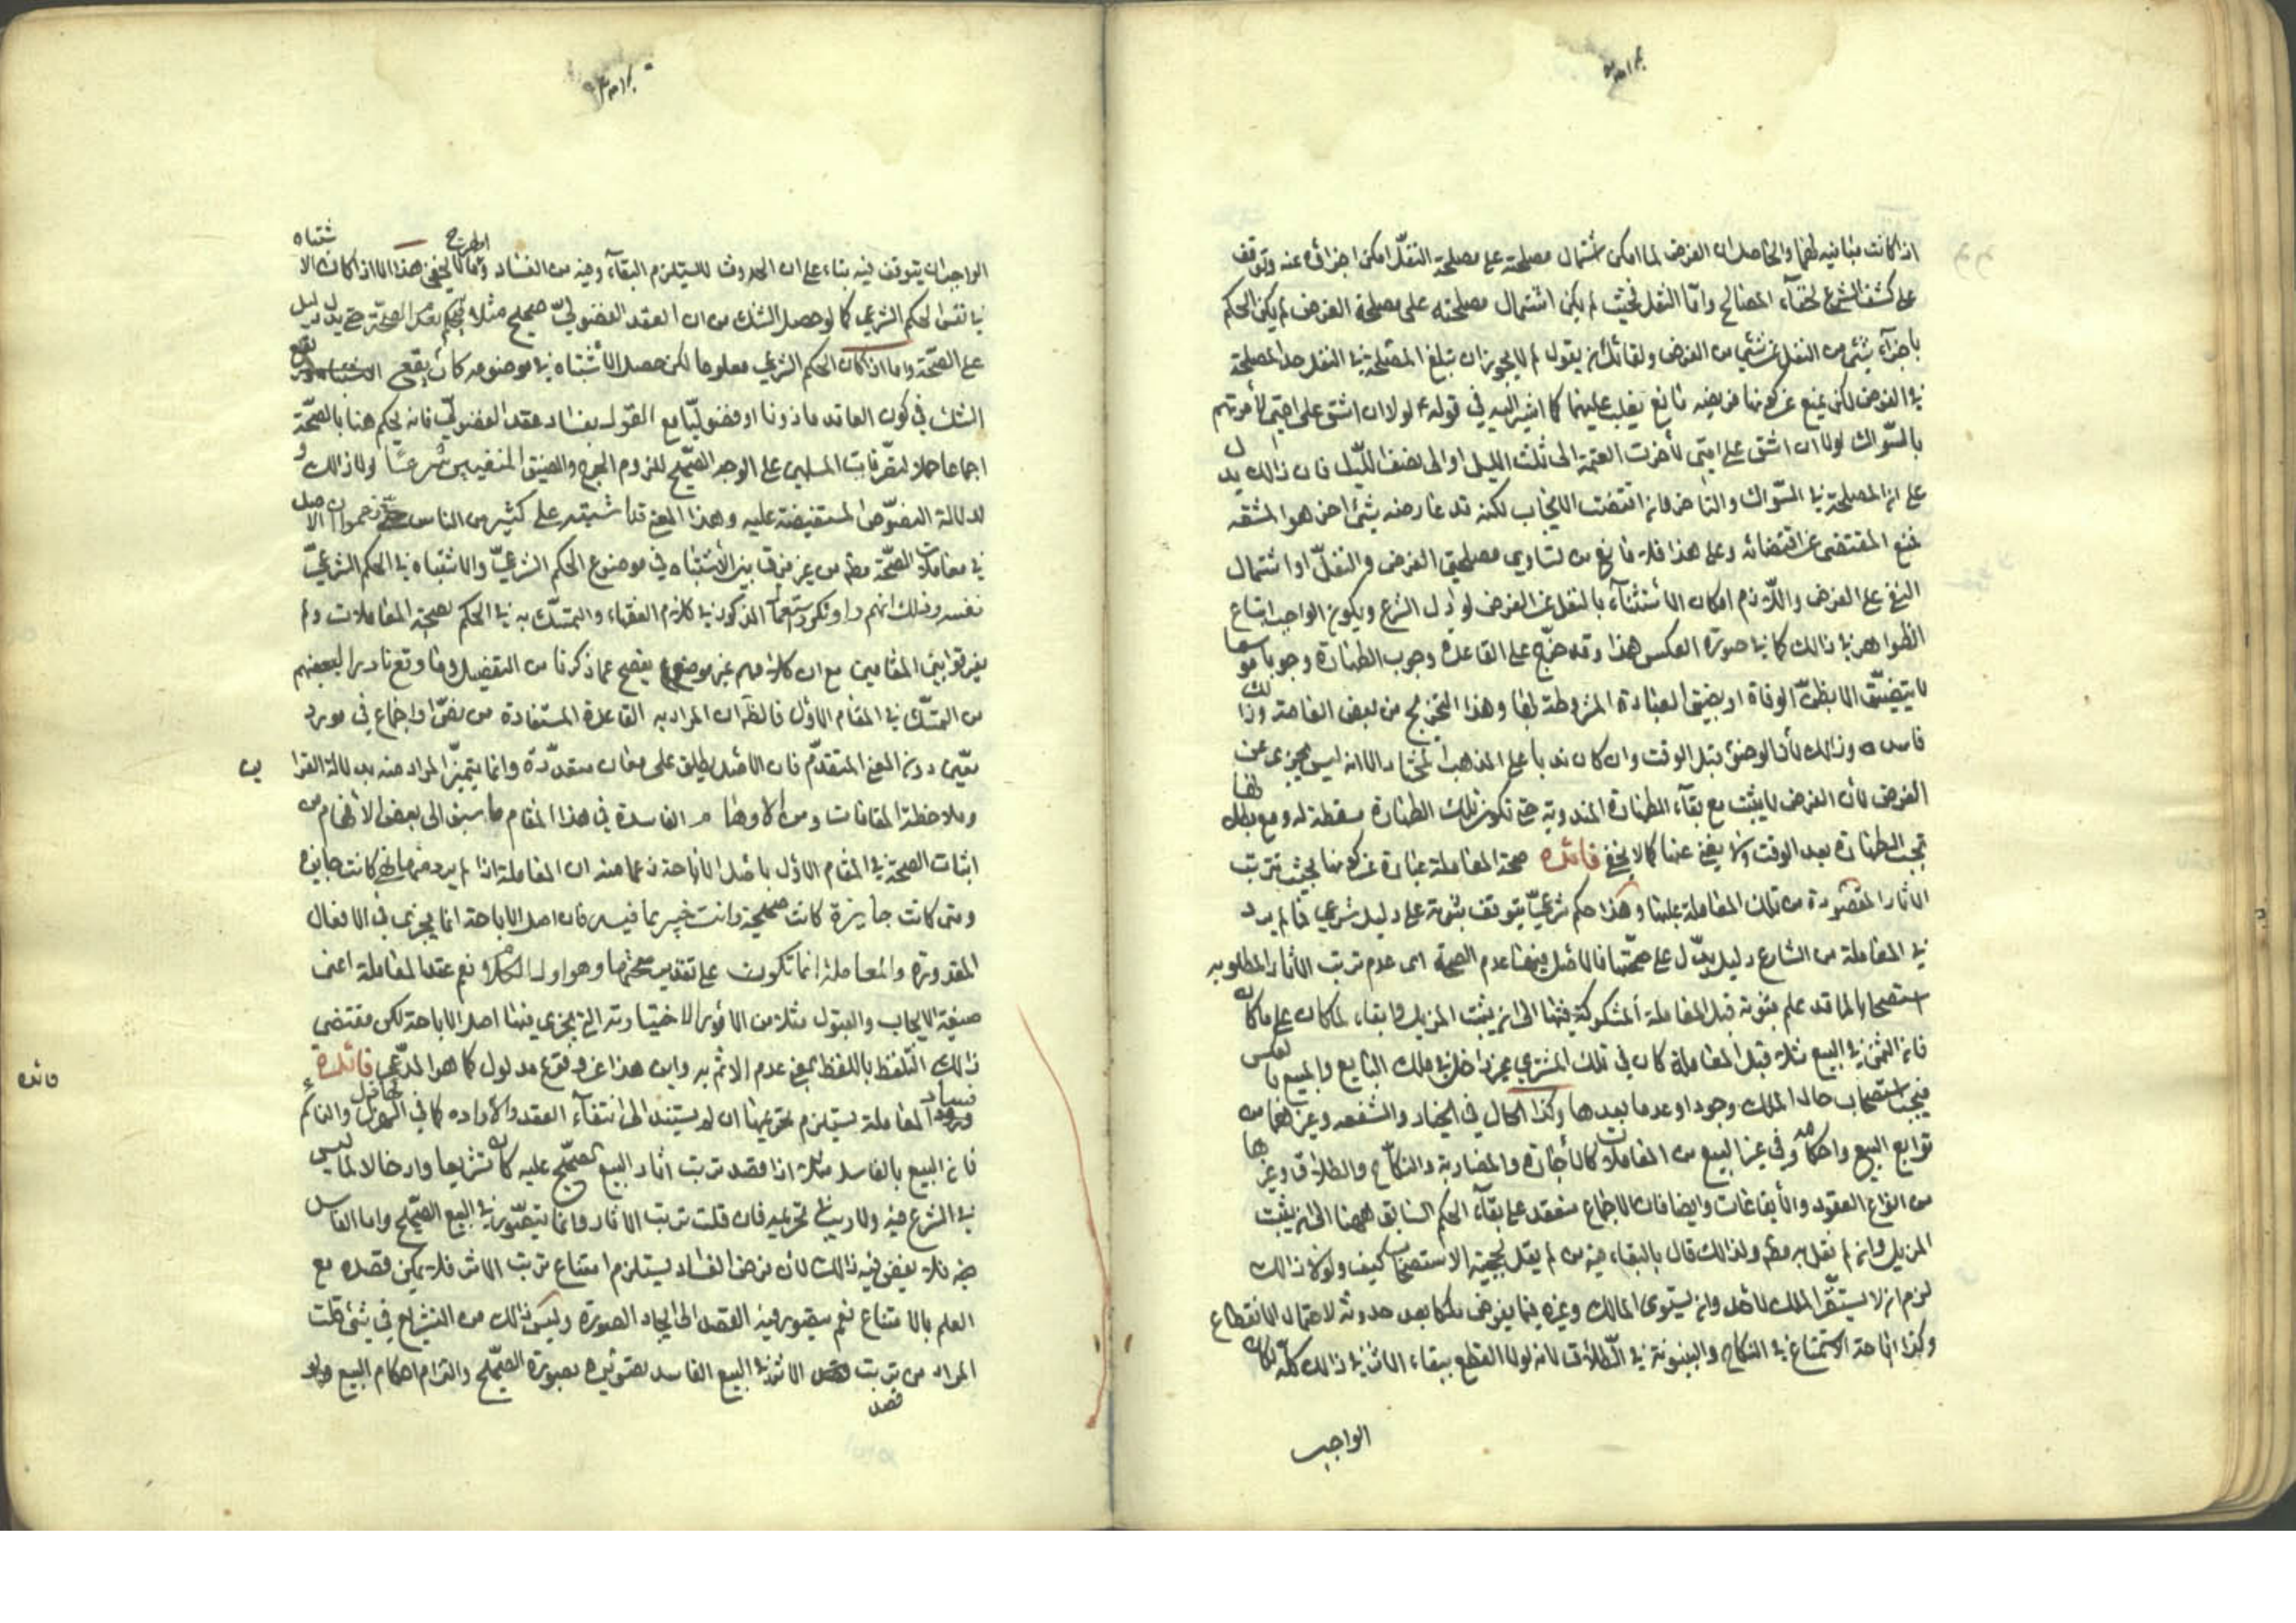 اذا كانت مباينيه لهما والحاصل ان الفرض لما امكن اشتمال مصلحته على مصلحة النفل امكن اجزاؤه عنه وتوقف
على كشف الشرع لخفآء المصالح وامّا النفل فحيث لم يكن اشتمال مصلحته على مصلحة الفرض لم يكن الحكم
باجزآء شئ من النفل عن شئ من الفرض ولقائل ان يقول لم لا يجوز ان تبلغ المصلحة في النفل حد المصلحة
في الفرض لكن يمنع عن كونها فريضه مانع يغلب عليها كما اشير اليه في قوله ع لولا ان اشق على امتى لأمرتهم
بالسّواك لولا ان اشق على امتى لأخرت العتمة الى ثلث الليل او الى نصف اللّيل فان ذالك يدل
على ان المصلحة في السّواك والتاخر فانه اقتضت الايجاب لكنه قد عارضه شئ اخر هو المشقه
فمنع المقتضى عن اقتضائه وعلى هذا فلا مانع من تساوى مصلحتى الفرض والنفلّ او اشتمال
النفل على الفرض واللّازم امكان الأستثنآء بالنفل عن الفرض لو دل الشرع ويكون الواجب اتباع
الظواهر في ذالك كما في صورة العكس هذا وقد خرّج على القاعدة وجوب الطهارة وجوبا موسعا
لا يتضيّق الا بظنّ الوفاة او بضيق العبادة المشروطة بها وهذا التخريج من بعض العامة وذالك
فاسد وذالك لأن الوضؤ قبل الوقت وان كان ندبا على المذهب المختار الا انه ليس يجزى عن
الفرض لأن الفرض لا يثبت مع بقآء الطهارة المندوبة حتى تكون تلك الطهارة مسقطة له ومع بطلانها
تجب الطهارة بعد الوقت ولا يغنى عنها كما لا يخفى فائده صحة المعاملة عبارة عن كونها بحيث تترتب
الاثار المقصودة من تلك المعاملة عليها وهذا حكم شرعيّ يتوقف ثبوته على دليل شرعى فما لم يرد
في المعاملة من الشارع دليل يدّل على صحّتها فالاصل فيها عدم الصحة اى عدم ترتب الاثار المطلوبه
استصحابا لما قد علم ثبوته قبل المعاملة المشكوكة فيها الى ان يثبت المزيل وابقاء لما كان على ما كان
فان الثمن في البيع مثلا قبل المعاملة كان في تلك المشترى غير داخل في ملك البايع والمبيع بالعكس
فيجب استصحاب حال الملك وجودا وعدما بعدها وكذا الحال في الخيار والشفعه وغيرهما من
توابع البيع واحكامه وفي غير البيع من المعاملات كالأجارة والمضاربة والنكاح والطلاق وغيرها
من انواع العقود والأيقاعات وايضا فان الاجماع منعقد على بقآء الحكم السابق ههنا الى ان يثبت
المزيل وان لم نقل به مطم ولذالك قال بالبقاء فيه من لم يقل بحجية الاستصحاب كيف ولولا ذالك
لزم ان لا يستقرّ الملك لأحد وان يستوى المالك وغيره فيما يفرض ملكا بعد حدوثه لاحتمال الانقطاع
وكذا اباحة الاستمتاع في النكاح والبينونة في الطّلاق لانه لولا القطع ببقاء الاثر في ذالك كلّه لكان
الواجب
الواجب ان يتوقف فيه بناء على ان الحدوث لا يستلزم البقآء وفيه من الفساد ما لا يخفى هذا الا اذا كان الاشتباه
في نفس الحكم الشرعي كما لو حصل الشك من ان العقد الفضولىّ صحيح مثلا فيحكم بعدم الصحّة حتى يدل دليل
على الصّحّة واما اذا كان الحكم الشرعي معلوما لكن حصل الأشتباه في موضوعه كأن يقع
الشك في كون العاقد ماذونا او فضوليّا مع القول بفساد عقد الفضوليّ فانه يحكم هنا بالصّحّة
اجماعا حملا لتصّرفات المسلمين على الوجه الصّحيح للزوم الحرج والضيق المنفيين شرعًا ولذالك و
لدلالة النصوّص المستفيضة عليه وهذا المعنى قد اشتبه على كثير من الناس حتى زعموا ان الاصل
في معاملات الصّحّة مطم من غير فرق بين الأشتباه في موضوع الحكم الشرعيّ والاشتباه في الحكم الشرعيّ
نفسه وذلك انهم راوا تكرر المذكور في كلام الفقهاء والتمسّك به في الحكم بصحة المعاملات ولم
يفرقوا بين المقامين مع ان كلامهم غير موضع يفصح عما ذكرنا من التفصيل وما وقع نادرا لبعضهم
من التمسّك في المقام الاوّل فالظّ ان المراد به القاعدة المستفادة من نصّ او اجماع في مورد
معّين دون المعنى المتقدّم فان الأصل يطلق على معان متعدّدة وانما يتميّز المراد منه بدلالة القراين
وملاحظة المقامات ومن الاوهام الفاسدة في هذا المقام ما سبق الى بعض الأفهام من
اثبات الصحة في المقام الاوّل باصل الاباحة زعما منه ان المعاملة اذا لم يرد فيها نهى كانت جايزه
ومتى كانت جايزة كانت صحيحة وانت خبير بما فيه فان اصل الاباحة انما يجزى في الافعال
المقدورة والمعاملة انما تكون على تقدير صحتها وهو اول الكلام نعم عقد المعاملة اعنى
صيغة الايجاب والقبول مثلا من الأمور الاختيارية التي يجزى فيها اصل الاباحة لكن مقتضى
ذالك التّلفظ باللفظ بمعنى عدم الاثم به واين هذا عن وقوع مدلول كما هو المدّعى فائده
فساد المعاملة يستلزم تحريمها ان لم يستند الى انتفآء العقد والأراده كما في الهزل والنائم
فان البيع بالفاسد مثلا اذا قصد ترتب اثار البيع الصّحيح عليه كان تشريعا وادخالا لما ليس
في الشرع فيه ولا ريب في تحريمه فان قلت ترتب الاثار وانما يتصّور في البيع الصّحيح واما الفاسد
منه فلا يفرض فيه ذالك لأن فرض الفساد يستلزم امتناع ترتب الاثر فلا يمكن قصده مع
العلم بالامتناع نعم يتصور فيه القصد الى ايجاد الصورة وليس ذالك من التشريع في شئ قلت
المراد من ترتب الاثر في البيع الفاسد تصويره بصورة الصّحيح والتزام احكام البيع
قصد
فائده